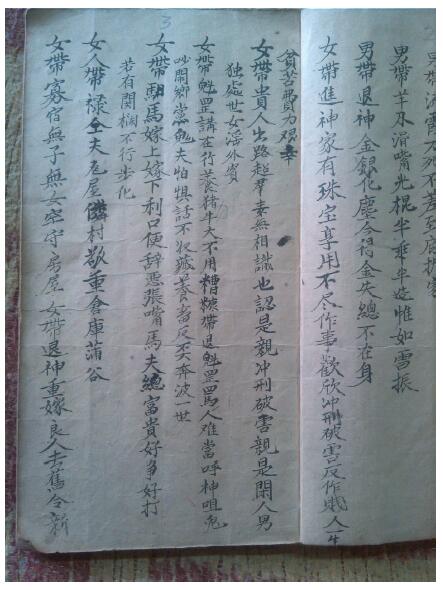 男帶羊刃滑嘴光棍半乘半造惟如雪振
男帶退神金銀化塵今得金失總不在身
女帶進神家有珠宝享用不尽作事歡欣冲刑破害反作賤人
貧苦費力
女帶貴人出路超群素無相識也認是親冲刑破害親是閑人男
独處世女淫外賓
女帶魁罡講在行養猪牛大不用糟糠帶退魁罡罵人难當呼神咀鬼
吵鬧鄉党鬼夫怕惧話不收藏養者反
奔波一世
女帶馹馬嫁上嫁下利口便辞惡張嘴馬夫總富貴好爭好打
若有関欄不行步化
女人帶禄全夫危屋隣村敬重倉庫蒲谷
女帶寡宿無子無女空守房屋女帶退神重嫁良人去舊冷新
3